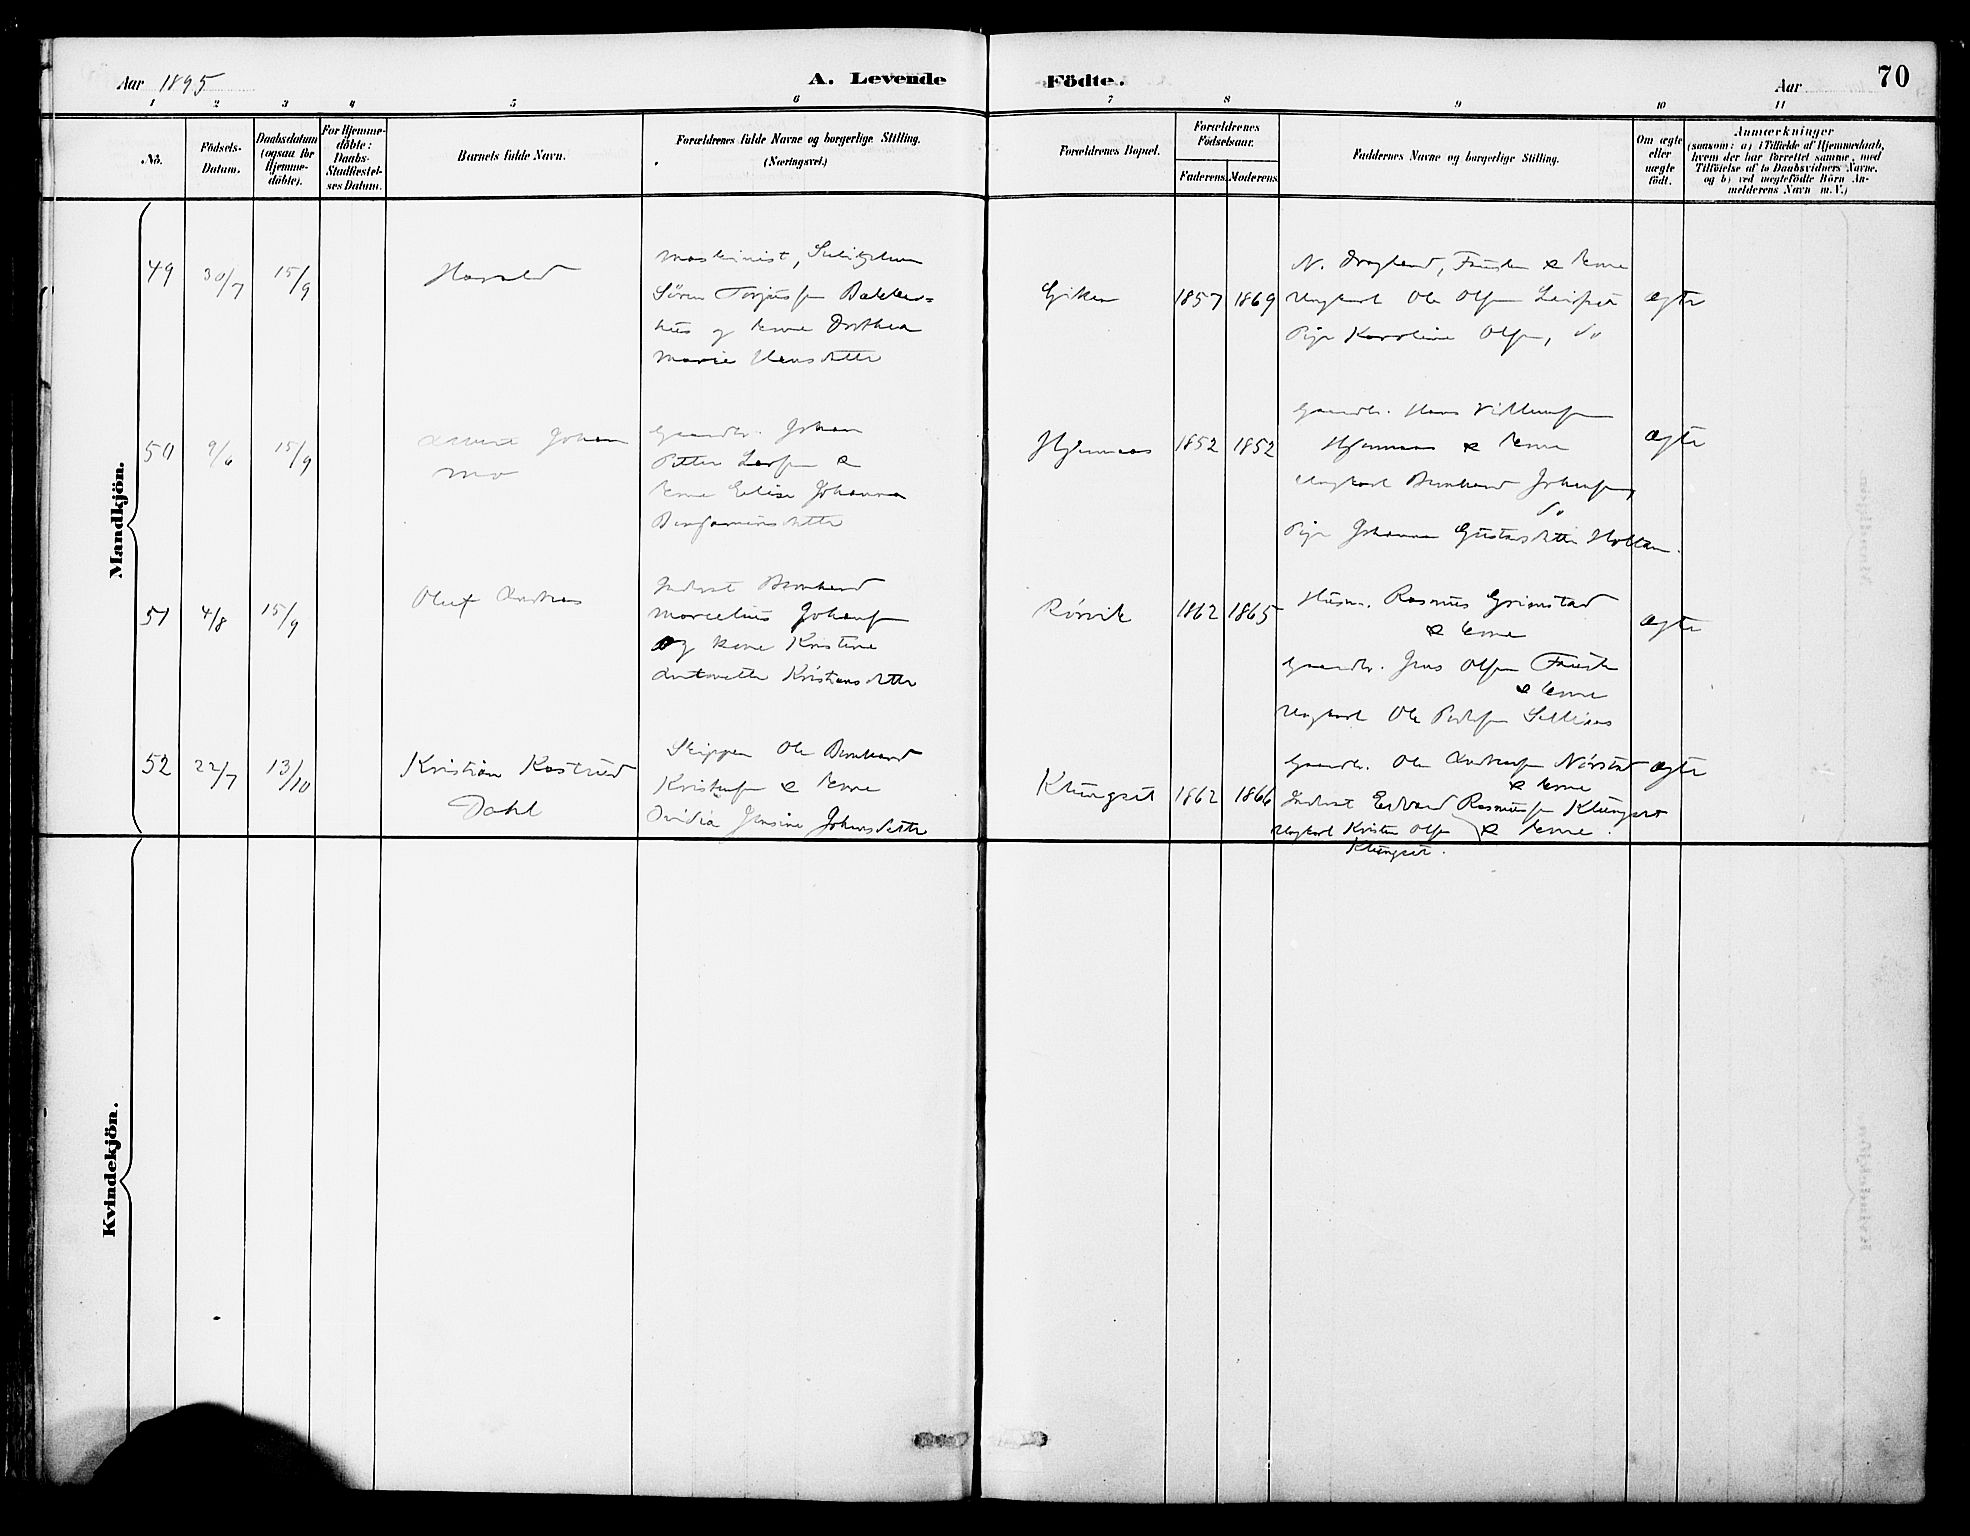 Aar 1895
A. Levende
Födte.
Aar
70
1 2 3 4 5 6 7 8 9 10 11
No.
Födsels-
Datum.
Daabsdatum
(ogsaa for
Hjemme-
döbte).
For Hjemme-
döbte:
Daabs-
Stadfæstel-
ses Datum.
Barnets fulde Navn.
Forældrenes fulde Navne og borgerlige Stilling.
(Næringsvei.)
Forældrenes Bopæl.
Forældrenes
Födselsaar.
Faderens.
Moderens.
Faddernes Navne og borgerlige Stilling.
Om ægte
eller
uægte
født.
Anmærkninger
(saasom: a) i Tilfælde af Hjemmedaab,
hvem der har forrettet samme, med
Tilføielse af to Daabsvidners Navne.
og b) ved uægtefödte Börn An-
melderens Navn m. V.)
Mandkjön.
49
30/7
15/9
Harald
Maskinist,
Sören Torjussen Bakke-
hus og kone Dorthea
Marie Hansdatter
Giken
1857
1869
N. Dragland, Fauske & kone
Ungkarl Ole Olsen Leifset
Pige Karoline Olsen, do
ægte
50
9/6
15/9
Johan
Mo
Gaardbr. Johan
Petter Larsen &
kone Elise Johanna
Benjaminsdatter
Hjemaas
1852
1852
Gaardbr. Hans Villumsen
Hjemaas & kone
Ungkarl Bernhard Johansen,
do
Pige Johanna Gustavsdatter Holtan.
ægte
51
4/8
15/9
Oluf Andreas
Inderst Bernhard
Marcelius Johansen
og kone Kristine
Antonette Kristiansdatter
Rörvik
1862
1865
Husm. Rasmus Grimstad
& kone
Gaardbr. Jens Olsen Fauske
& kone
Ungkarl Ole Pedersen
ægte
52
22/7
13/10
Kristian Kastrud
Dahl
Skipper Ole Bernhard
Kristensen & kone
Ovidia Jensine Johansdatter
Klungset
1862
1866
Gaardbr. Ole Andreasen Nörstad
& kone
Inderst Edvard Rasmussen Klungset
& kone.
Ungkarl Kristen Olsen
Klungset.
ægte
Kvindekjön.